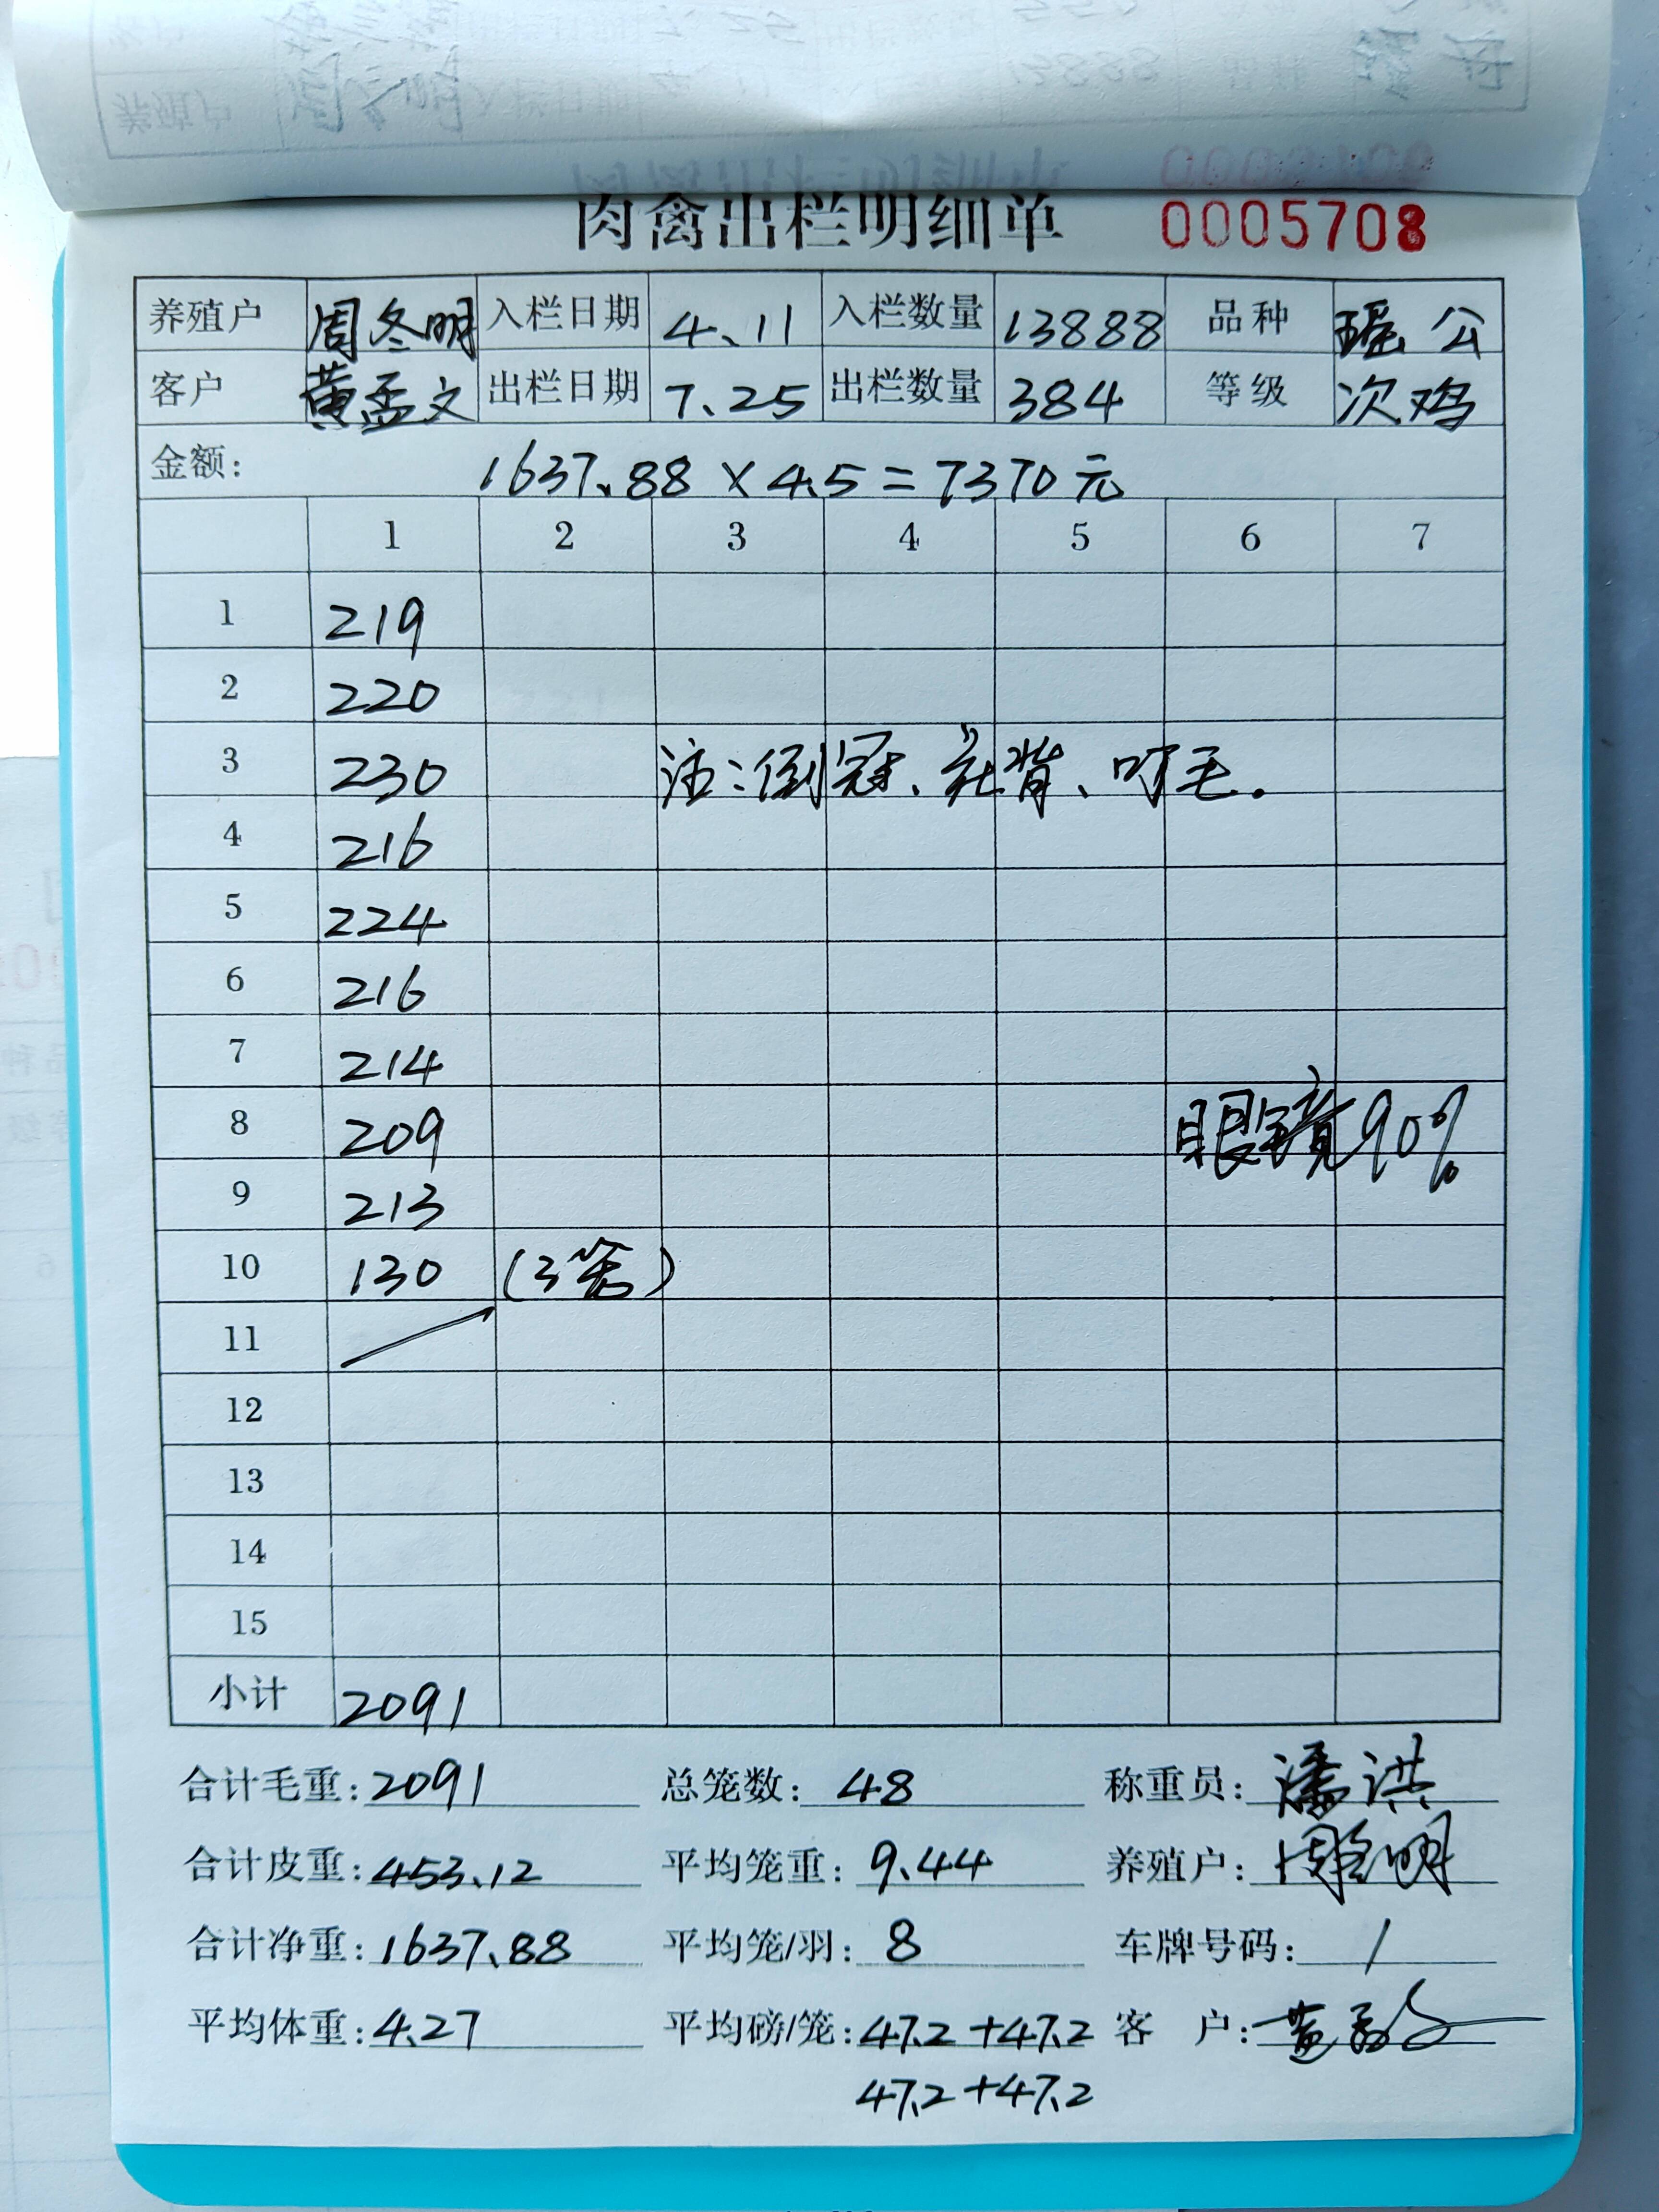 肉禽出栏明细单 0005708
养殖户 周冬明 入栏日期 4.11 入栏数量 13888 品种 瑶公
客户 黄孟文 出栏日期 7.25 出栏数量 384 等级 次鸡
金额: 1637.88 × 4.5 = 7370元
1 2 3 4 5 6 7
1 219
2 220
3 230 注:倒冠、花背、叮毛。
4 216
5 224
6 216
7 214
8 209 眼镜90%
9 213
10 130 (3笼)
11
12
13
14
15
小计 2091
合计毛重: 2091 总笼数: 48 称重员: 潘洪
合计皮重: 453.12 平均笼重: 9.44 养殖户: 周冬明
合计净重: 1637.88 平均笼/羽: 8 车牌号码: /
平均体重: 4.27 平均磅/笼: 47.2+47.2 客户:
47.2+47.2